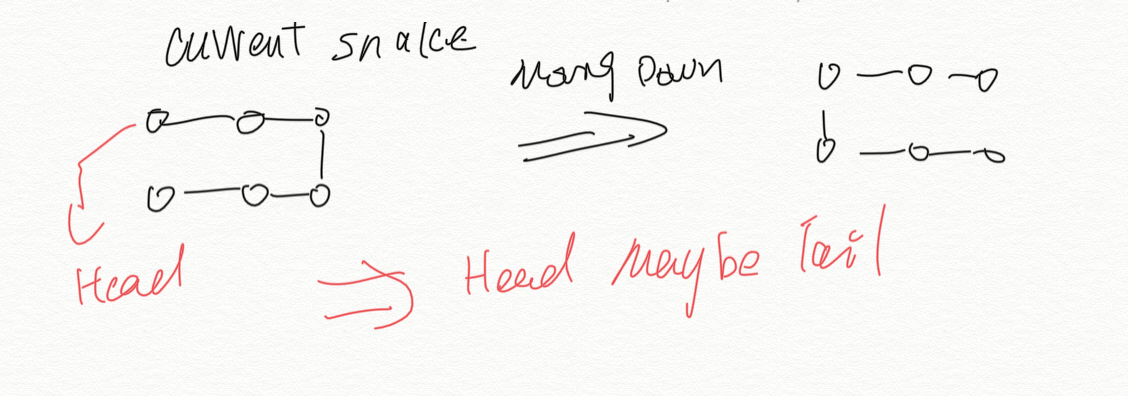 current snake
Mong Down
Head
Head maybe Tail